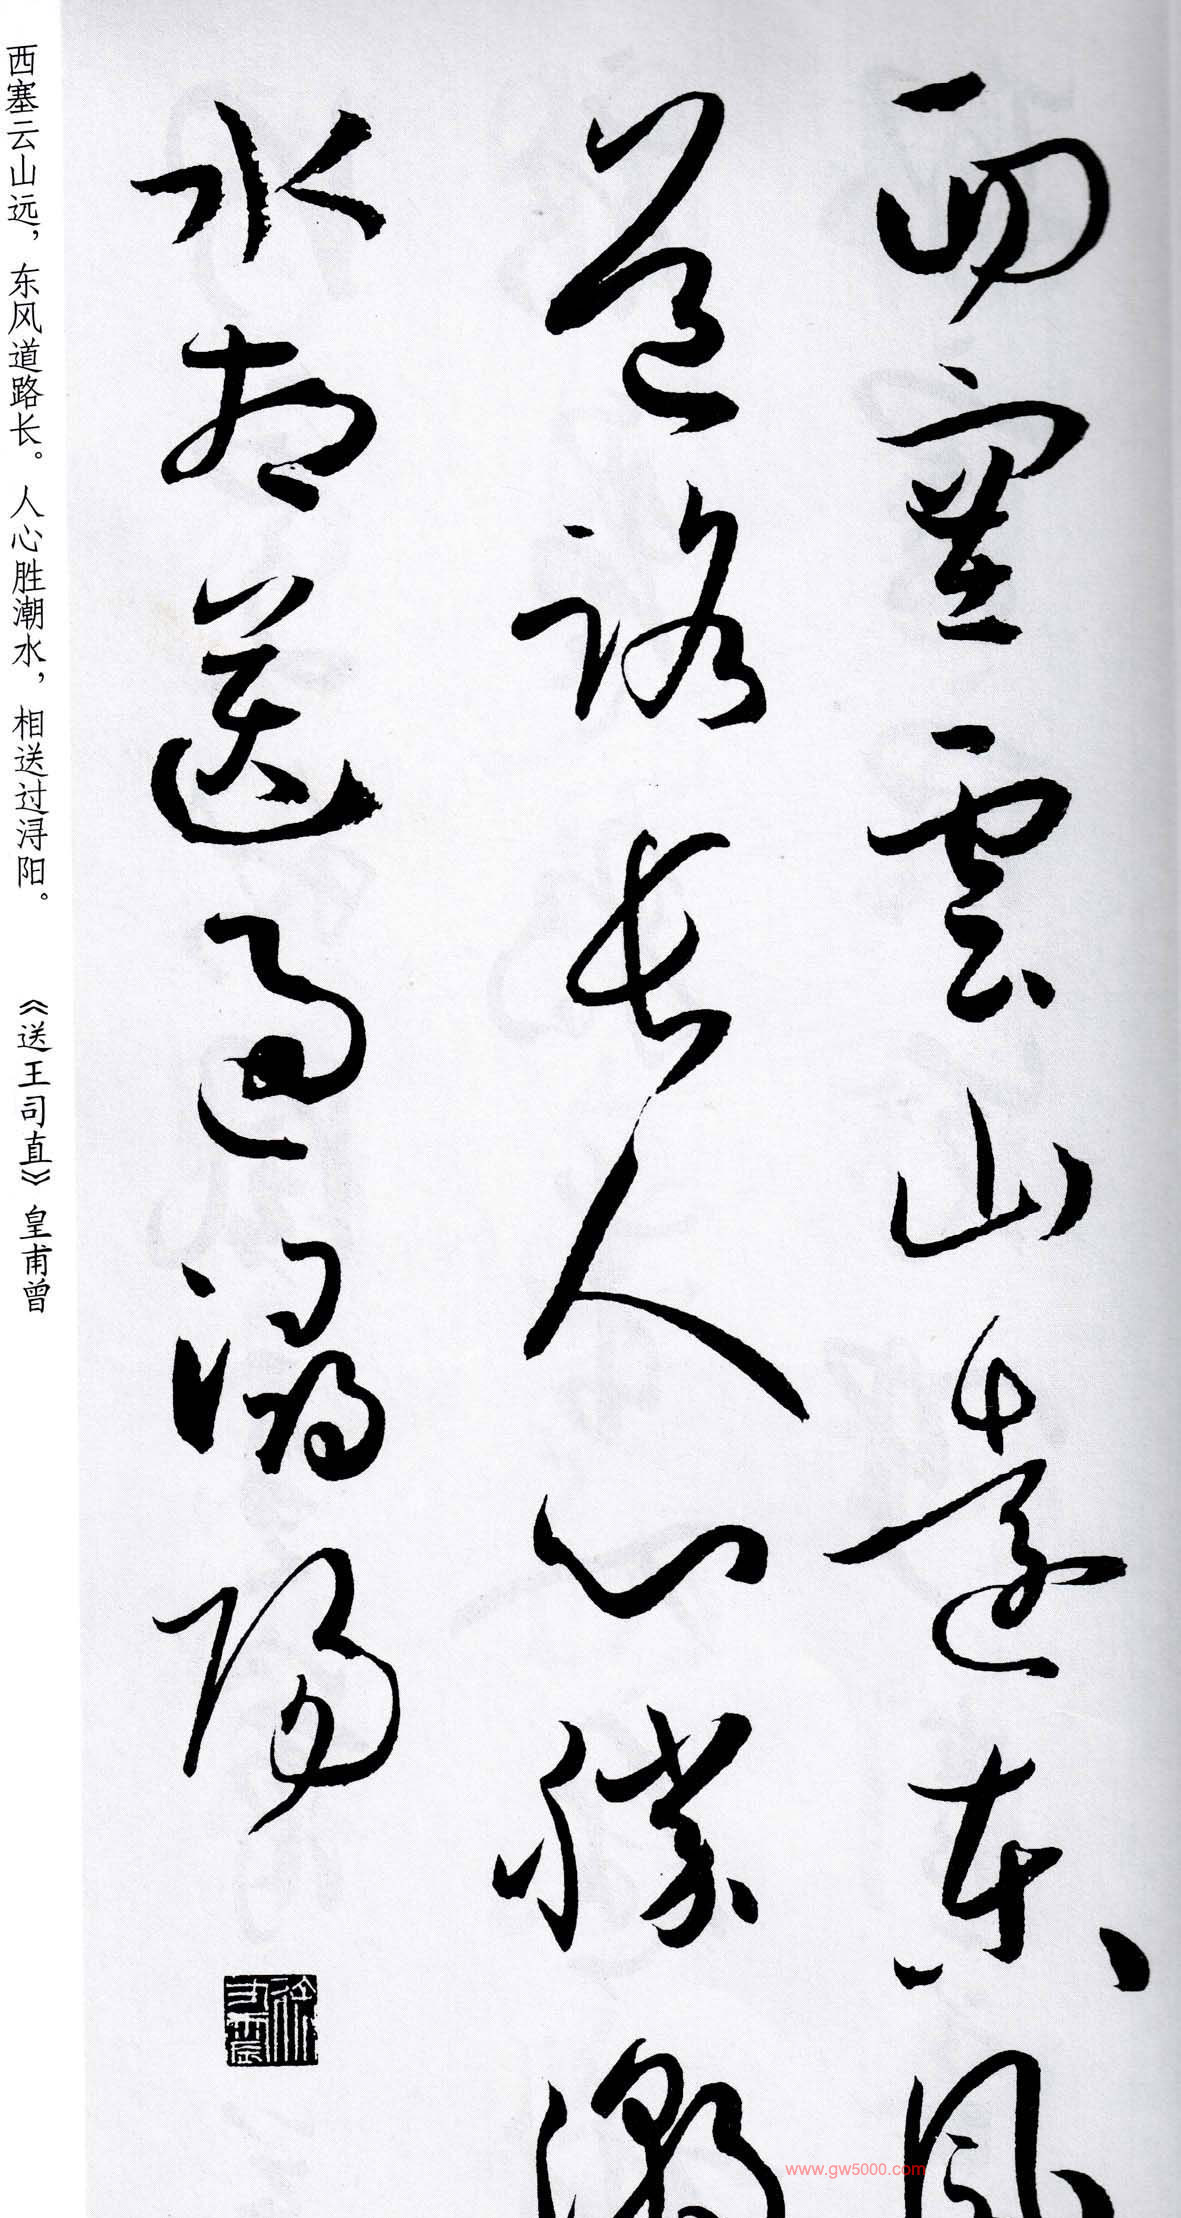 西塞雲山遠東風
道路長人心勝潮
水相送過潯陽
西塞云山远，东风道路长。人心胜潮水，相送过浔阳。 《送王司直》皇甫曾
www.gw5000.com